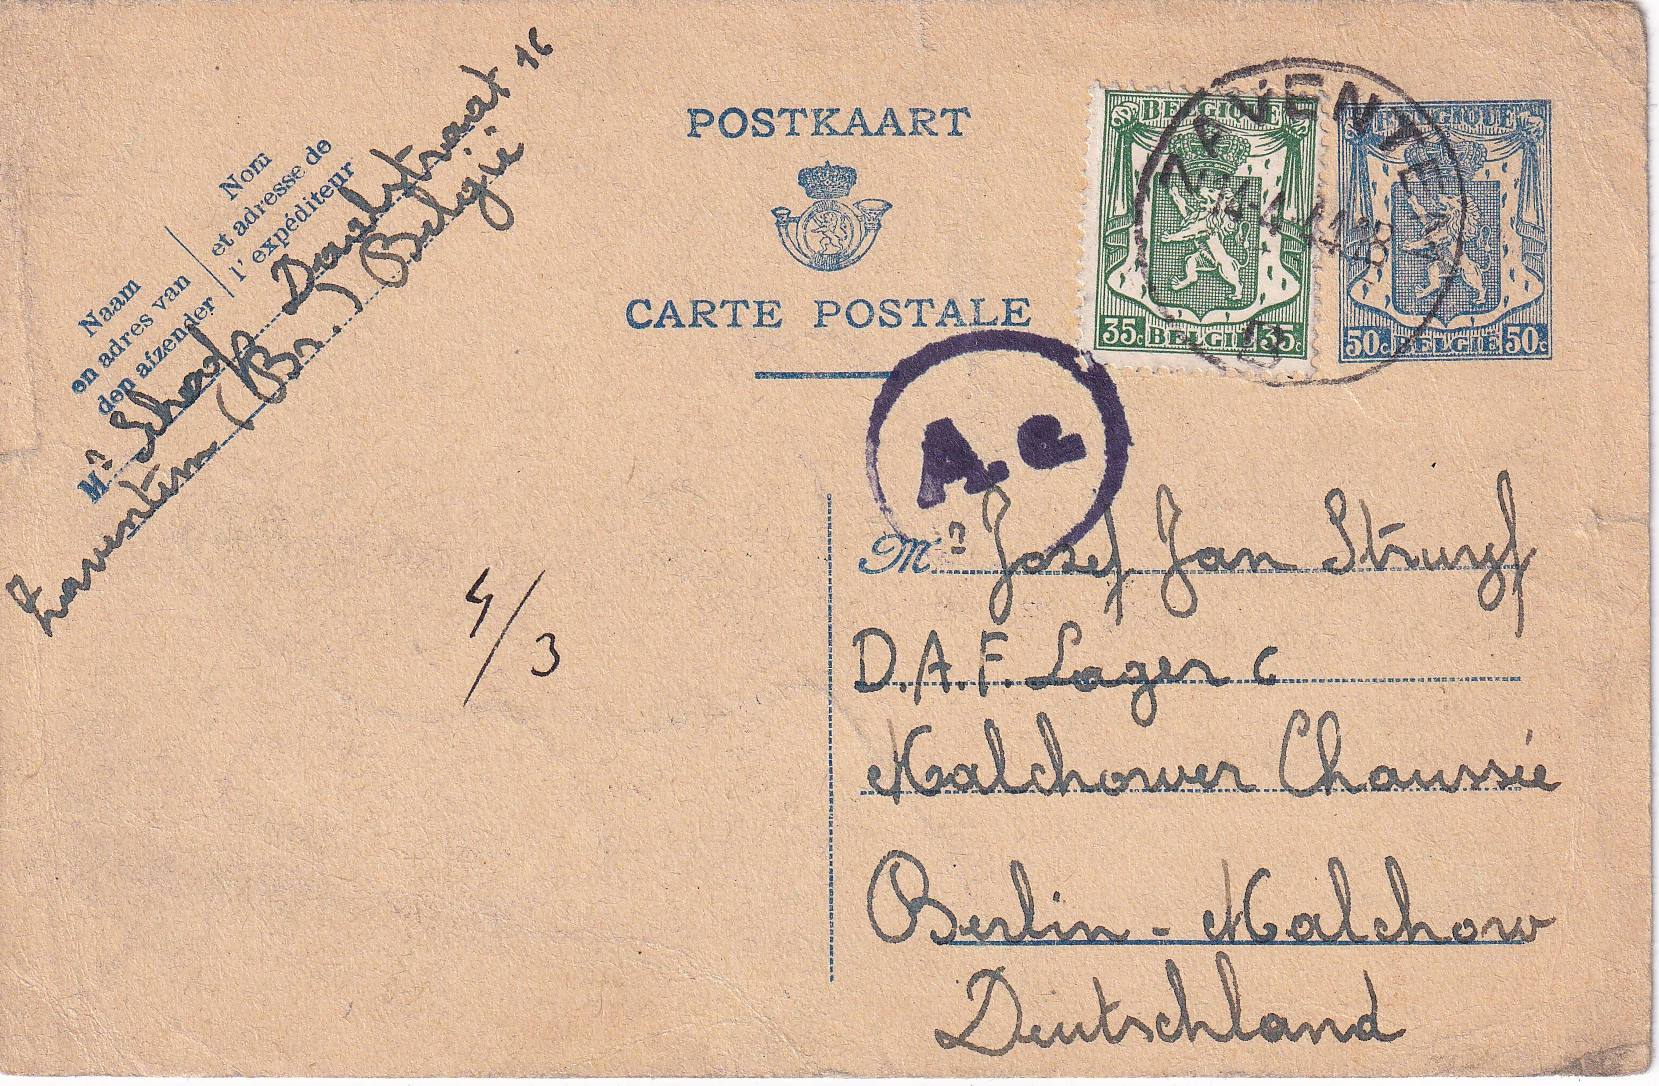 POSTKAART
CARTE POSTALE
Naam
en adres van
den afzender
Nom
et adresse de
l'expéditeur
Mr Schoofs Dorpstraat 16
Zaventem (Br.) België
BELGIQUE
35c BELGIE 35c
BELGIQUE
50c BELGIE 50c
ZAVENTEM
14-4-44 18
A.e
4/3
Mr Jozef Jan Struyf
D.A.F. Lager 6
Malchower Chaussée
Berlin - Malchow
Deutschland